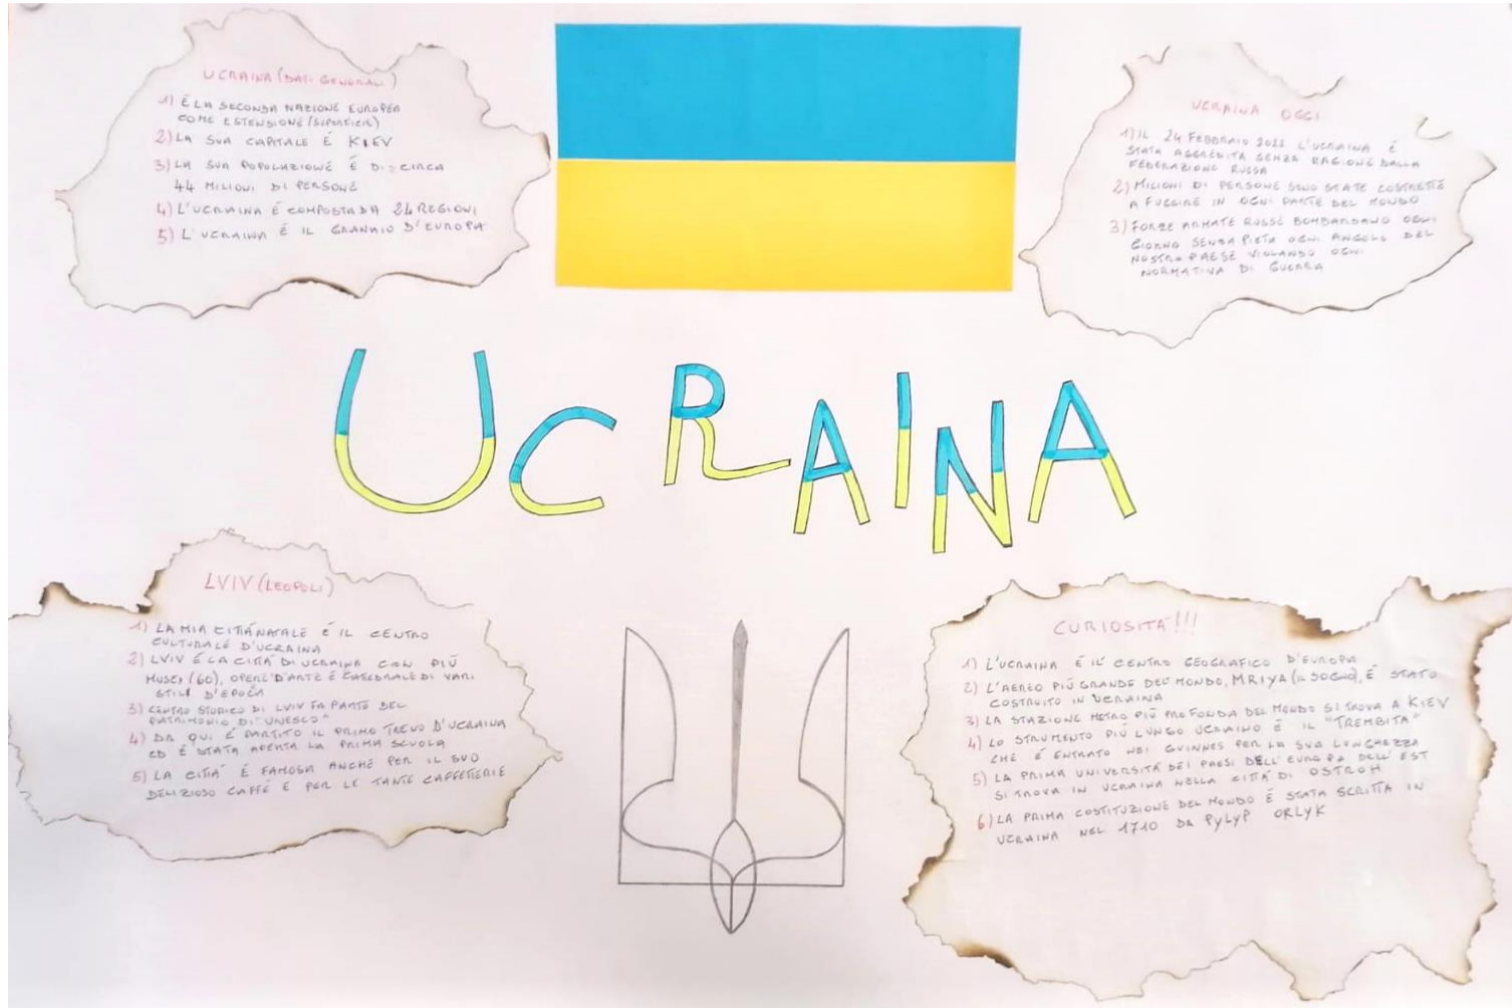 UCRAINA (DATI GENERALI)
1) É LA SECONDA NAZIONE EUROPEA
COME ESTENSIONE (SUPERFICIE)
2) LA SUA CAPITALE É KIEV
3) LA SUA POPOLAZIONE É DI CIRCA
44 MILIONI DI PERSONE
4) L'UCRAINA É COMPOSTA DA 24 REGIONI
5) L'UCRAINA É IL GRANAIO D'EUROPA
UCRAINA OGGI
1) IL 24 FEBBRAIO 2022 L'UCRAINA É
STATA AGGREDITA SENZA RAGIONE DALLA
FEDERAZIONE RUSSA
2) MILIONI DI PERSONE SONO STATE COSTRETTE
A FUGGIRE IN OGNI PARTE DEL MONDO
3) FORZE ARMATE RUSSE BOMBARDANO OGNI
GIORNO SENZA PIETÀ OGNI ANGOLO DEL
NOSTRO PAESE VIOLANDO OGNI
NORMATIVA DI GUERRA
UCRAINA
LVIV (LEOPOLI)
1) LA MIA CITTÁ NATALE É IL CENTRO
CULTURALE D'UCRAINA
2) LVIV É LA CITTÁ DI UCRAINA CON PIÚ
MUSEI (60), OPERE D'ARTE É CATEDRALE DI VARI
STILI D'EPOCA
3) CENTRO STORICO DI LVIV FA PARTE DEL
PATRIMONIO DI "UNESCO"
4) DA QUI É PARTITO IL PRIMO TRENO D'UCRAINA
ED É STATA APERTA LA PRIMA SCUOLA
5) LA CITTÁ É FAMOSA ANCHE PER IL SUO
DELIZIOSO CAFFÉ E PER LE TANTE CAFFETTERIE
CURIOSITÁ!!!
1) L'UCRAINA É IL CENTRO GEOGRAFICO D'EUROPA
2) L'AEREO PIÚ GRANDE DEL MONDO, MRIYA (IL SOGNO), É STATO
COSTRUITO IN UCRAINA
3) LA STAZIONE METRO PIÚ PROFONDA DEL MONDO SI TROVA A KIEV
4) LO STRUMENTO PIÚ LUNGO UCRAINO É IL "TREMBITA"
CHE É ENTRATO NEI GUINNES PER LA SUA LUNGHEZZA
5) LA PRIMA UNIVERSITÁ DEI PAESI DELL'EUROPA DELL'EST
SI TROVA IN UCRAINA NELLA CITTÁ DI OSTROH
6) LA PRIMA COSTITUZIONE DEL MONDO É STATA SCRITTA IN
UCRAINA NEL 1710 DA PYLYP ORLYK